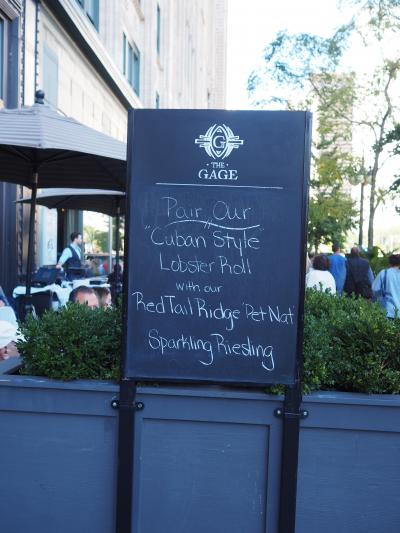 G
· THE ·
GAGE
Pair Our
"Cuban Style"
Lobster Roll
with our
Red Tail Ridge 'Pet Nat'
Sparkling Riesling